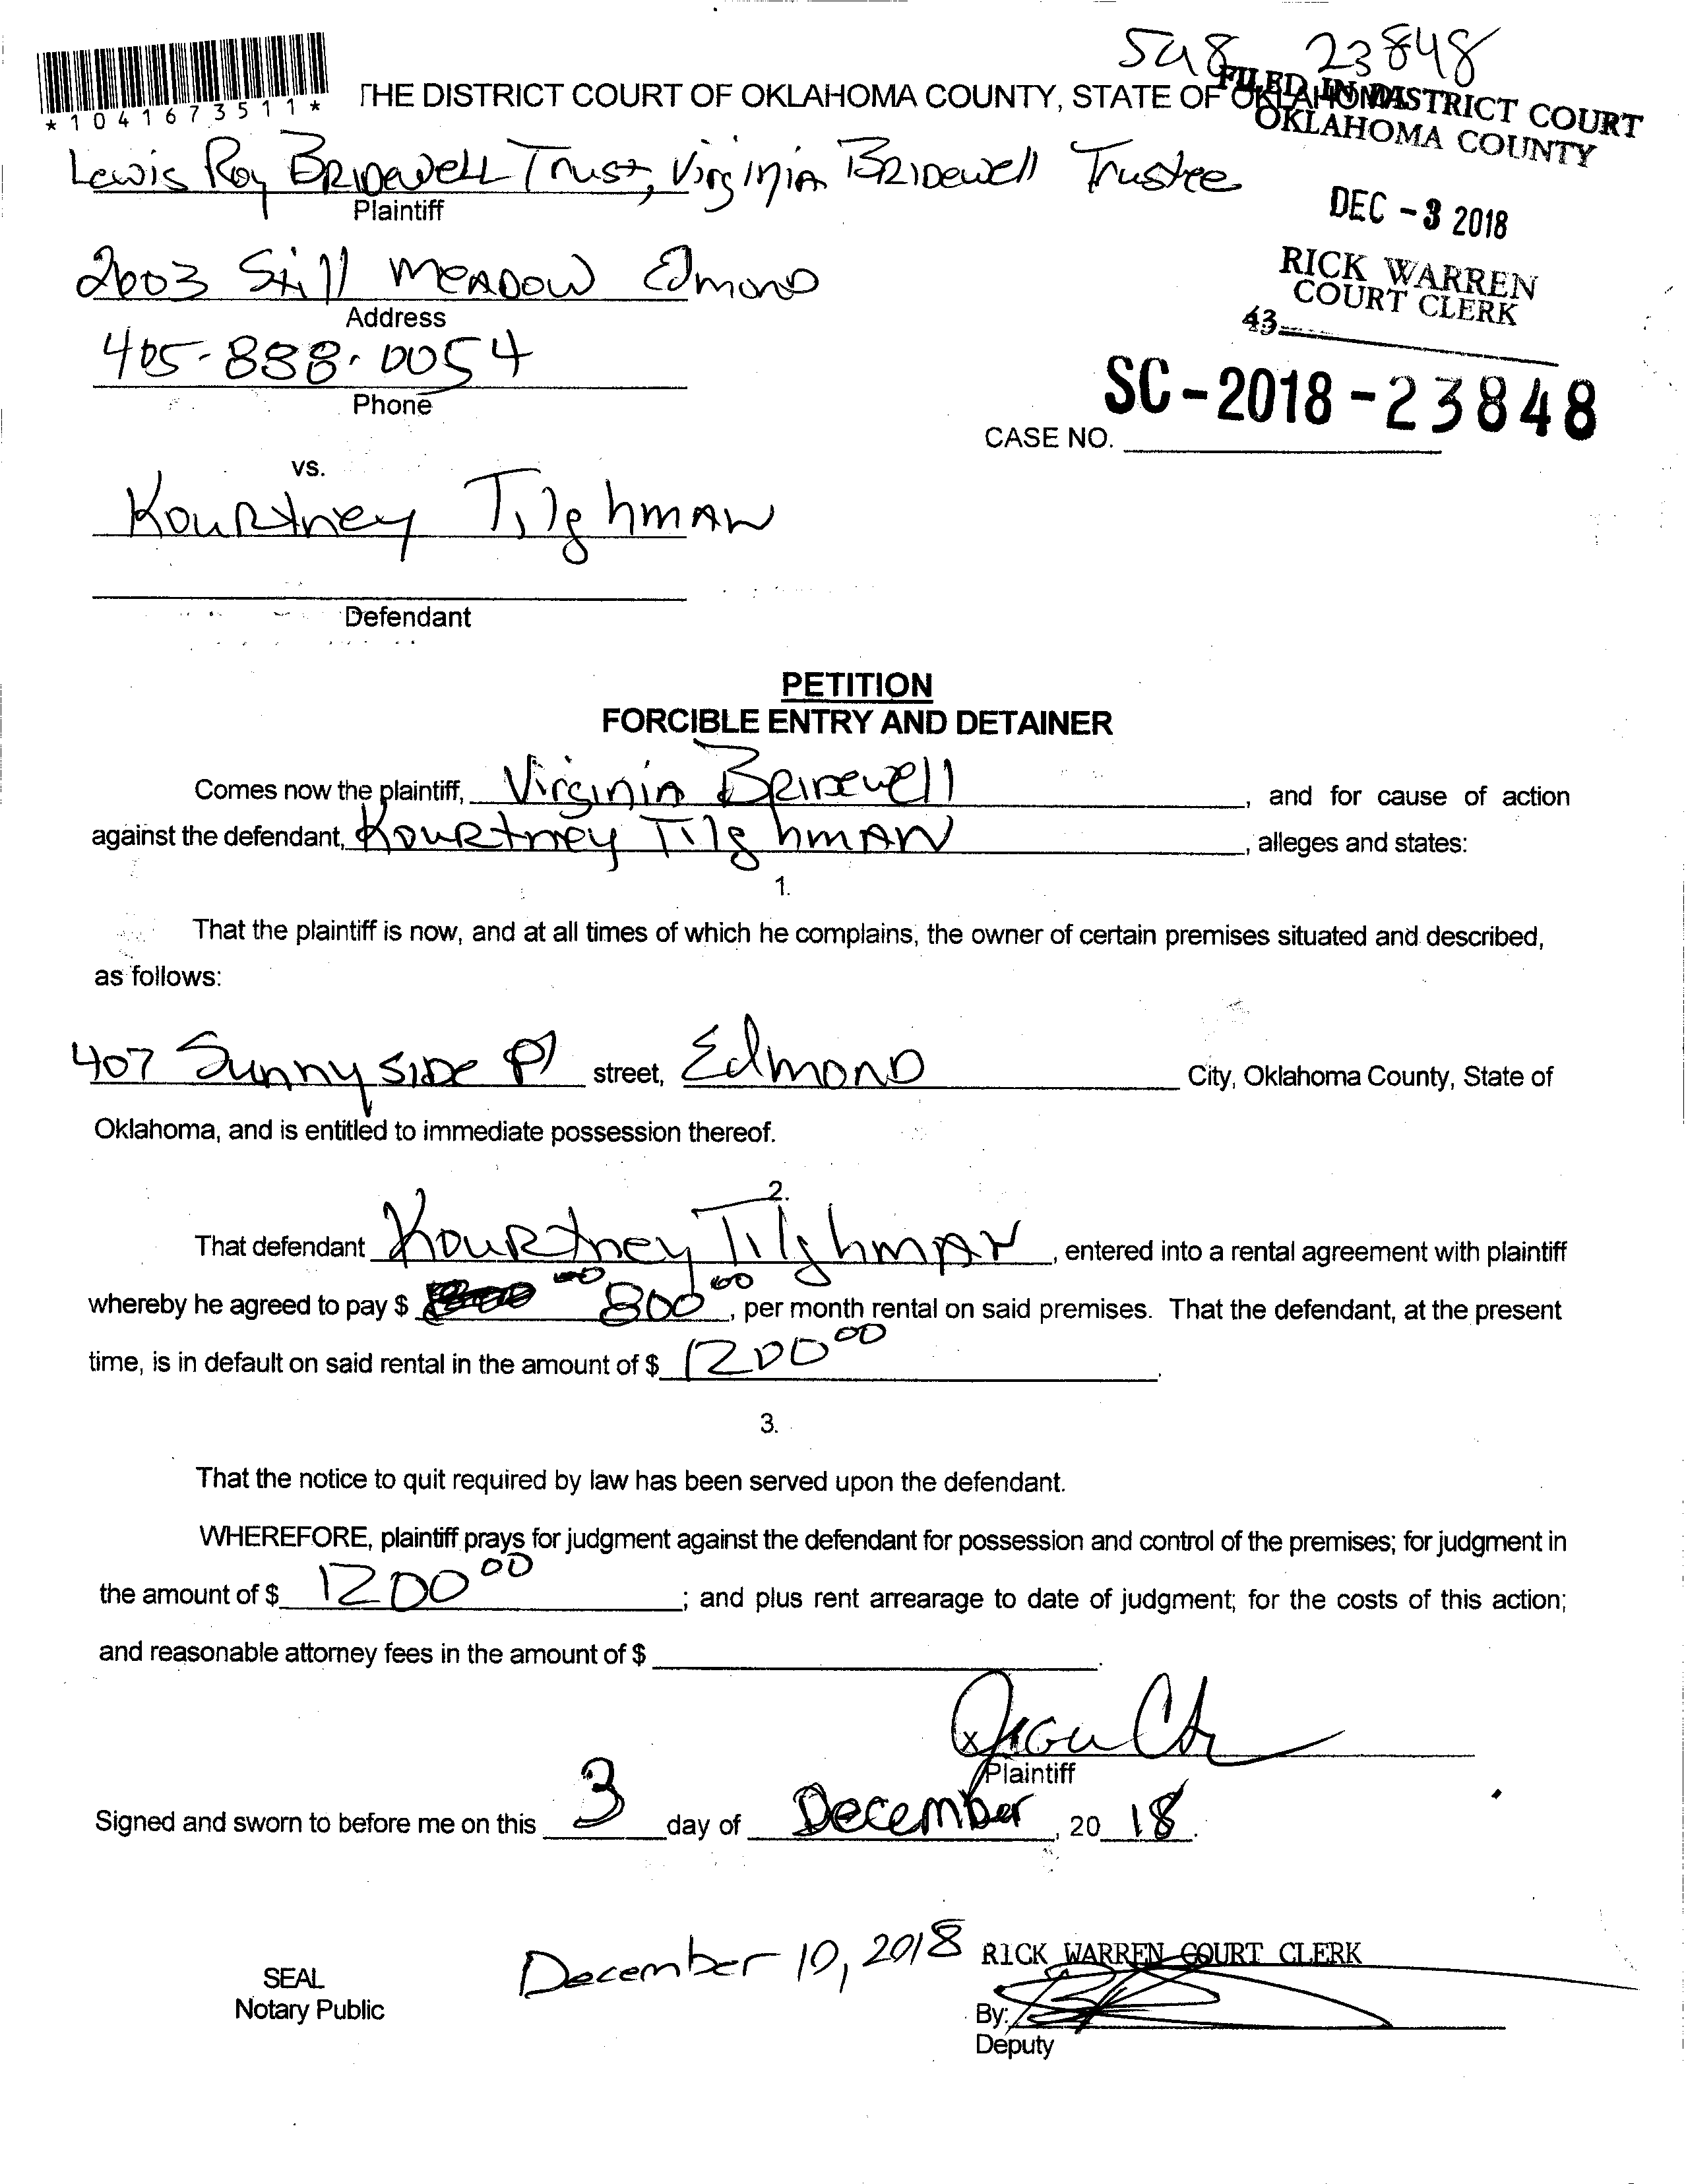 5498 23848
*1041673511*
THE DISTRICT COURT OF OKLAHOMA COUNTY, STATE OF OKLAHOMA
FILED IN DISTRICT COURT
OKLAHOMA COUNTY
Lewis Roy Bridewell Trust, Virginia Bridewell Trustee
Plaintiff
DEC - 3 2018
2003 Still Meadow Edmond
Address
RICK WARREN
COURT CLERK
43
405-888-0054
Phone
SC-2018-23848
CASE NO.
vs.
Kourtney Tilghman
Defendant
PETITION
FORCIBLE ENTRY AND DETAINER
Comes now the plaintiff, Virginia Bridewell, and for cause of action
against the defendant, Kourtney Tilghman, alleges and states:
1.
That the plaintiff is now, and at all times of which he complains, the owner of certain premises situated and described,
as follows:
407 Sunnyside Pl street, Edmond City, Oklahoma County, State of
Oklahoma, and is entitled to immediate possession thereof.
2.
That defendant Kourtney Tilghman, entered into a rental agreement with plaintiff
whereby he agreed to pay $ 800 00, per month rental on said premises. That the defendant, at the present
time, is in default on said rental in the amount of $ 1200 00.
3.
That the notice to quit required by law has been served upon the defendant.
WHEREFORE, plaintiff prays for judgment against the defendant for possession and control of the premises; for judgment in
the amount of $ 1200 00; and plus rent arrearage to date of judgment; for the costs of this action;
and reasonable attorney fees in the amount of $
x
Plaintiff
Signed and sworn to before me on this 3 day of December, 20 18.
December 10, 2018
RICK WARREN COURT CLERK
SEAL
Notary Public
By:
Deputy